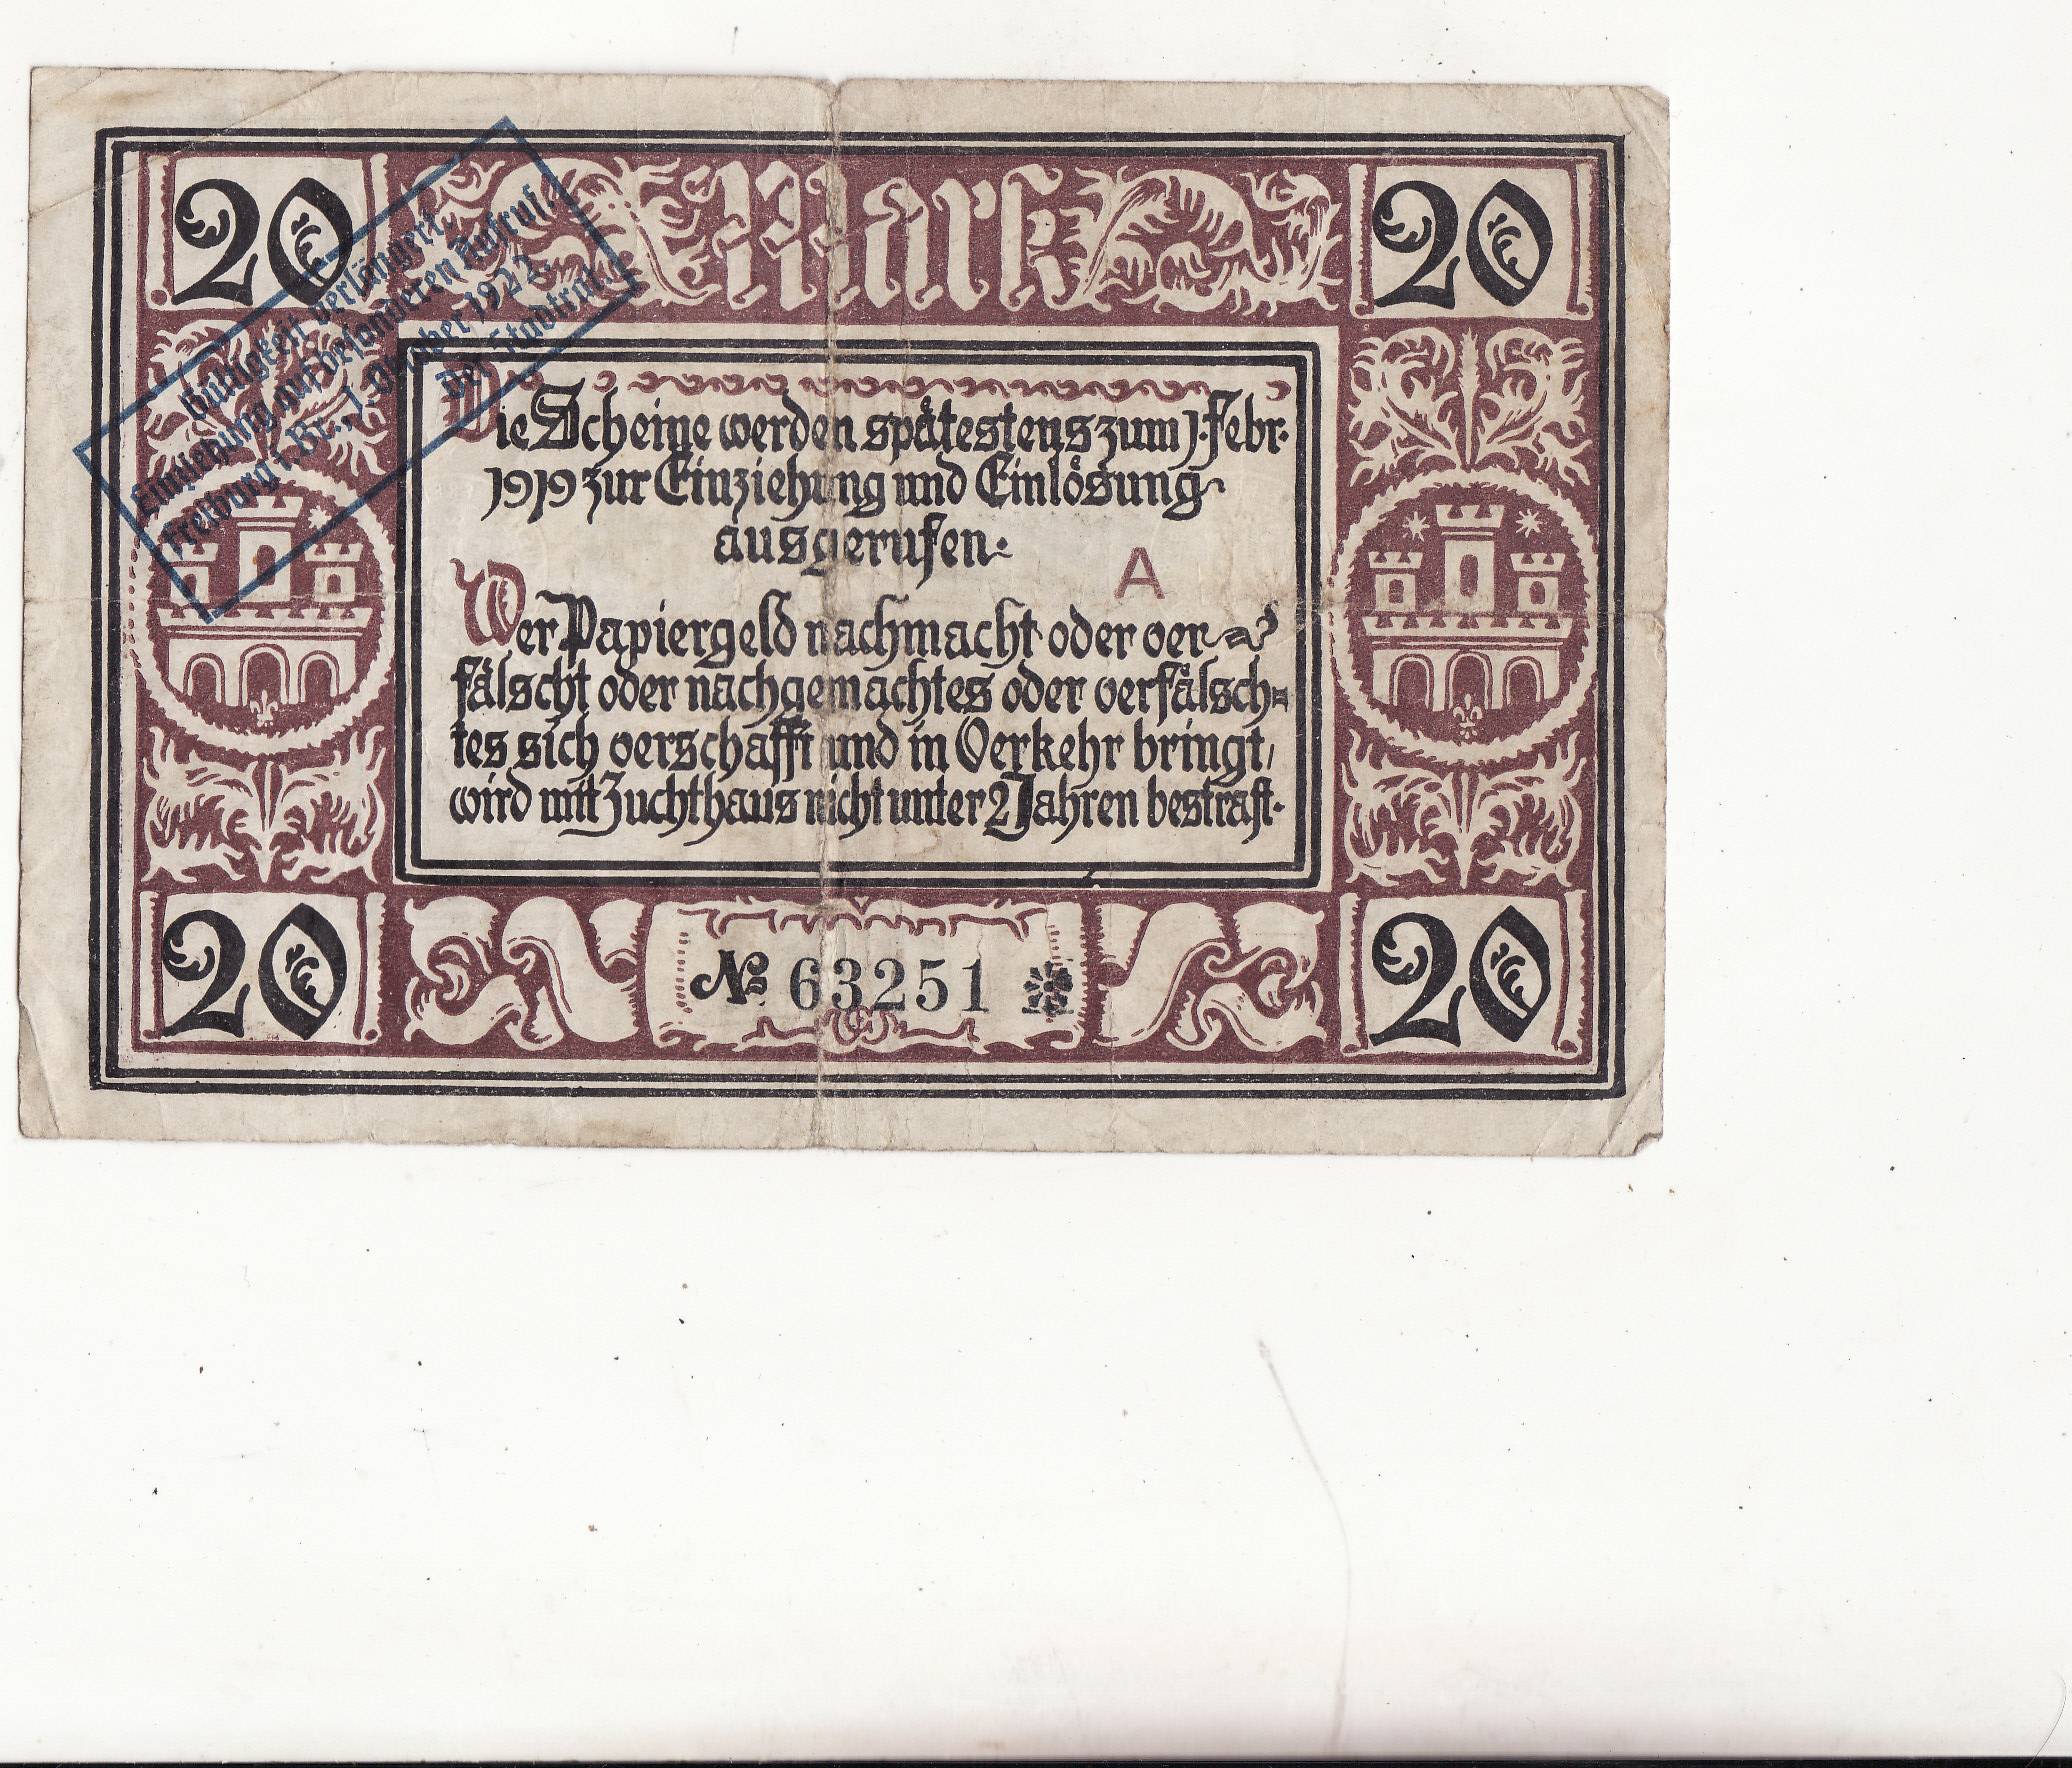 20 Mark 20
Gültigkeit verlängert.
Einlösung auf besonderen Aufruf.
Freiburg i. Br., 1. Oktober 1922.
Der Stadtrat.
Die Scheine werden spätestens zum 1. Febr.
1919 zur Einziehung und Einlösung
ausgerufen.
A
Wer Papiergeld nachmacht oder ver-
fälscht oder nachgemachtes oder verfälsch-
tes sich verschafft und in Verkehr bringt,
wird mit Zuchthaus nicht unter 2 Jahren bestraft.
20 № 63251 20